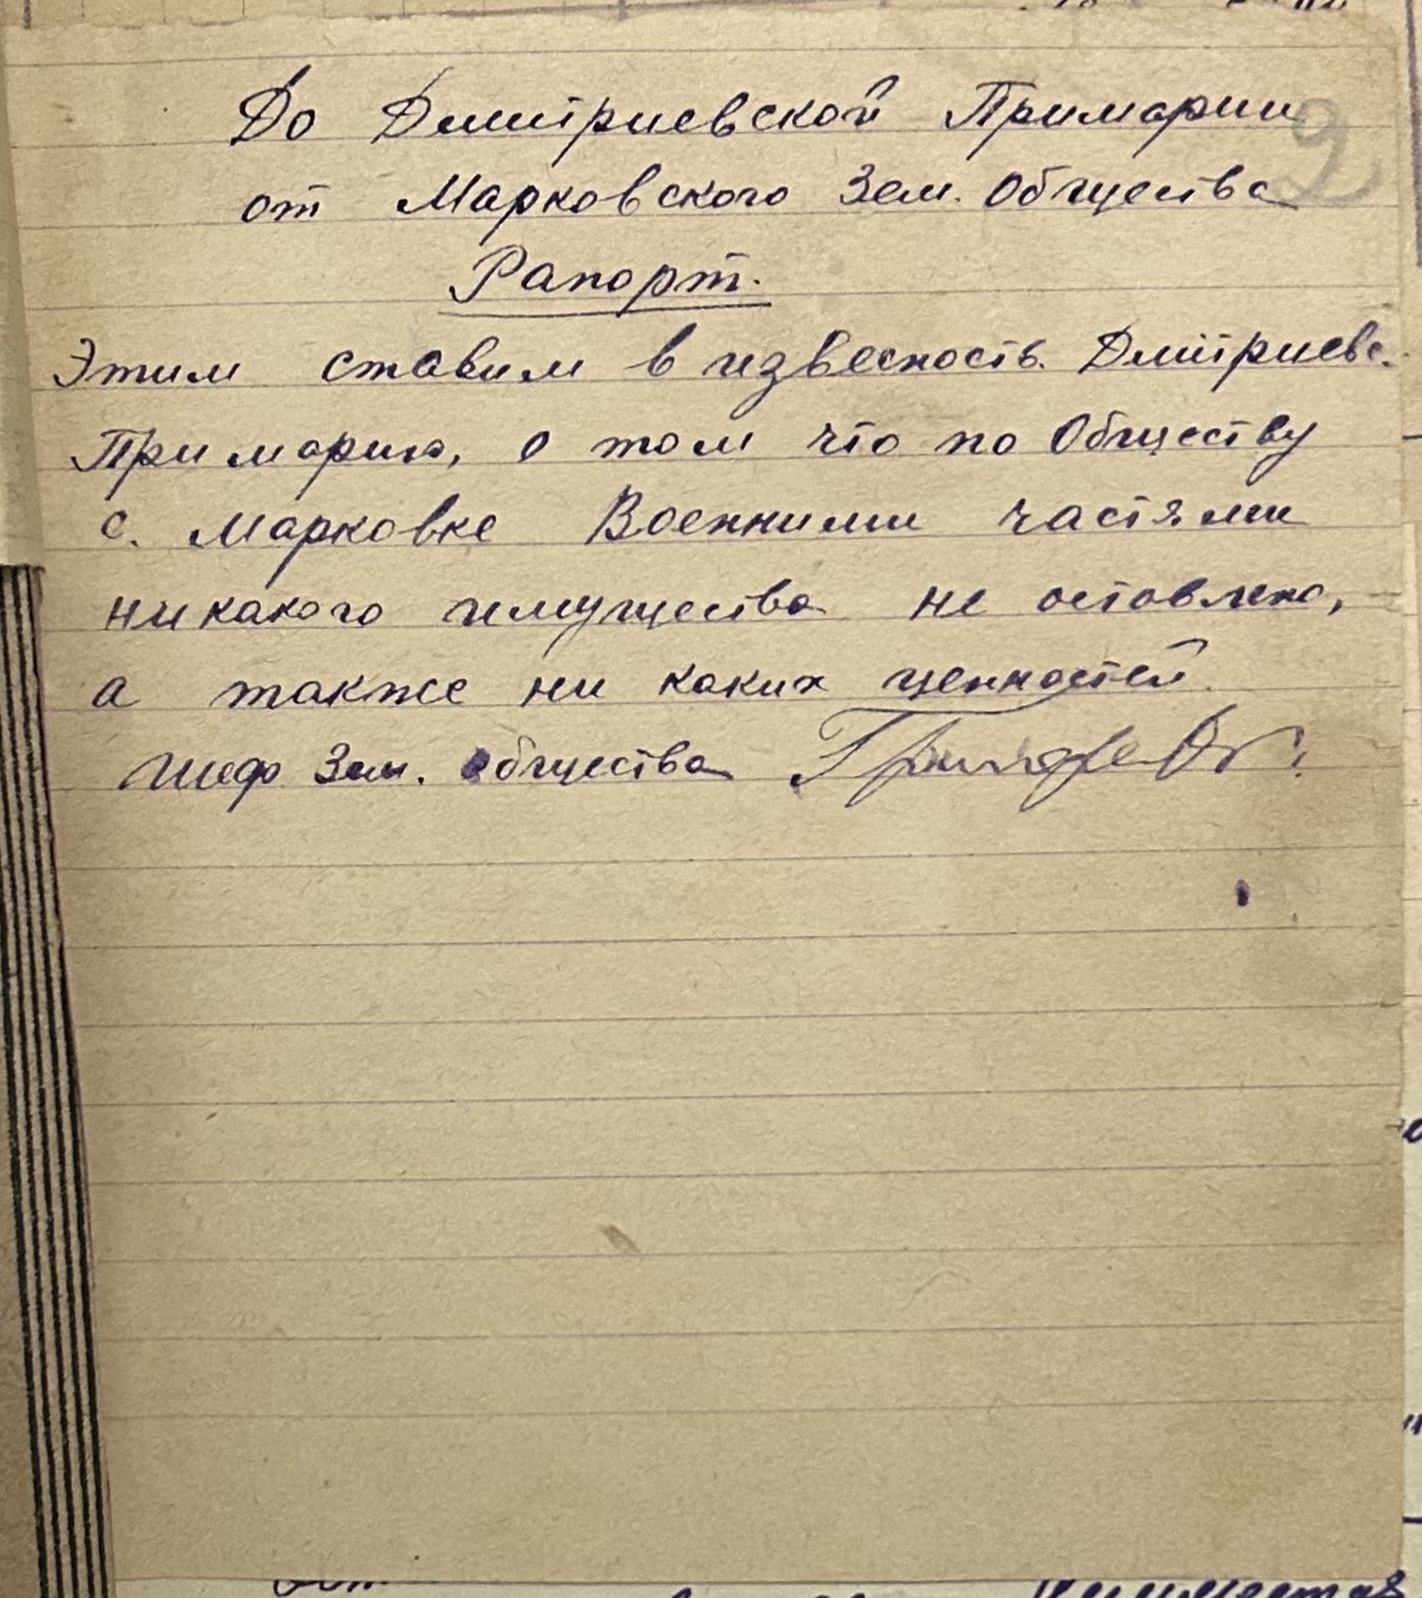 До Дмитриевской Примарии
2
от Марковского Зем. Общества
Рапорт.
Этим ставим в извесность Дмитриевс.
Примарию, о том что по Обществу
с. Марковке Военними частями
никакого имущества не оставлено,
а также ни каких ценностей.
Шеф Зем. общества